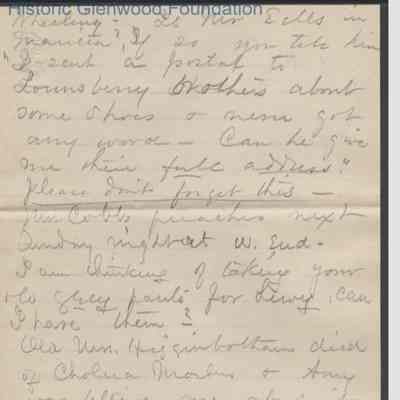 Historic Glenwood Foundation
Meeting - Is Mr Eells in
Marietta? If so you tell him
"I sent a postal to
Lounsbery Brothers about
some shoes & never got
any word - Can he give
me their full address."
Please don't forget this -
Mr. Cobb preaches next
Sunday night at W. End -
I am thinking of taking your
old grey pants for Dewey, can
I have them?
Old Mrs. Higginbotham died
of Cholera Morbus & Amy